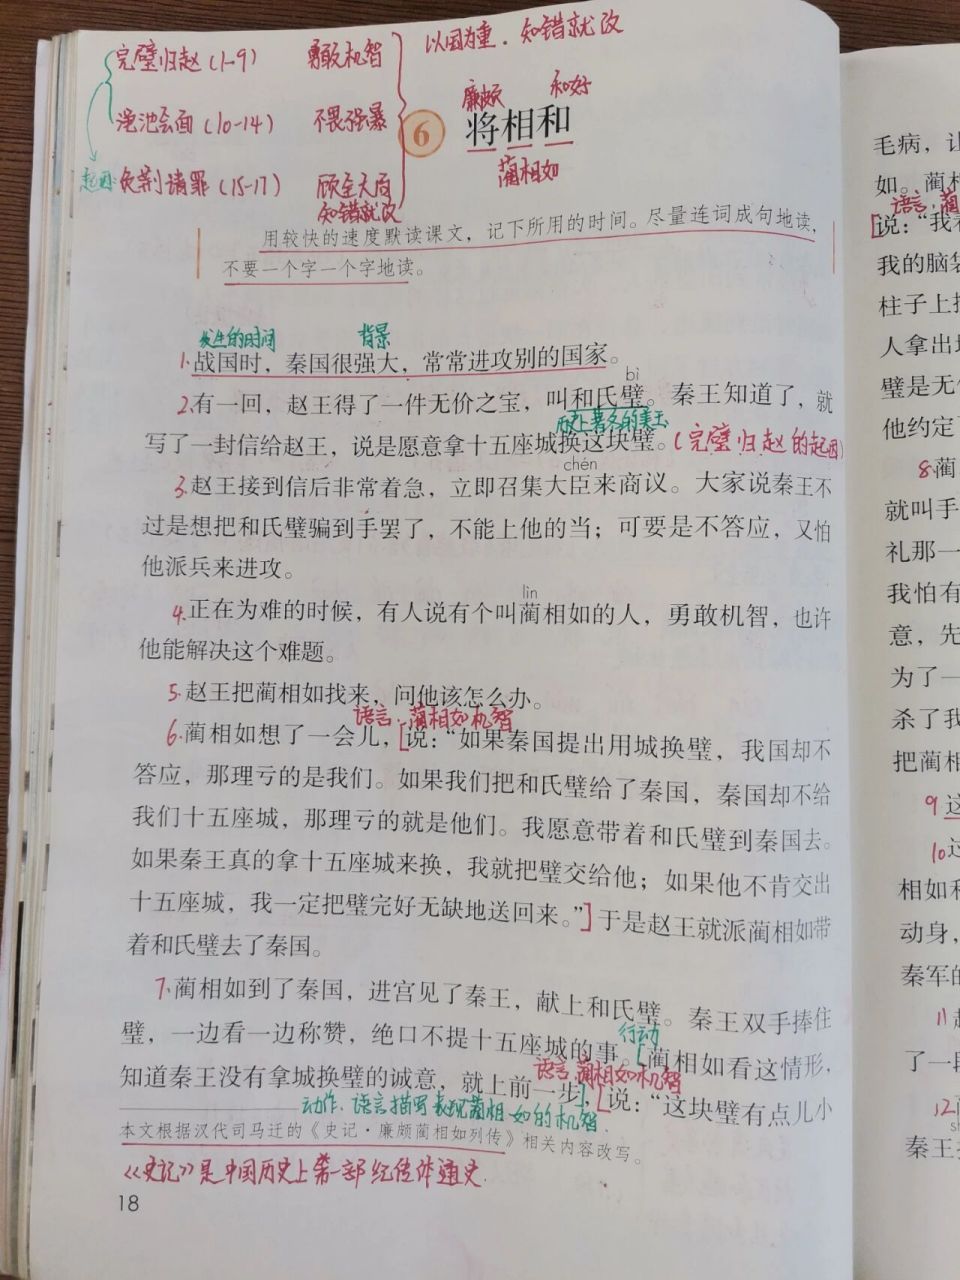 完璧归赵(1-9) 勇敢机智
以国为重. 知错就改
渑池会面(10-14) 不畏强暴
廉颇 和好
6 将相和
蔺相如
起因: 负荆请罪(15-17) 顾全大局
知错就改
用较快的速度默读课文，记下所用的时间。尽量连词成句地读，
不要一个字一个字地读。
发生的时间 背景
1.战国时，秦国很强大，常常进攻别的国家。
bì
2.有一回，赵王得了一件无价之宝，叫和氏璧。秦王知道了，就
历史上著名的美玉
写了一封信给赵王，说是愿意拿十五座城换这块璧。(完璧归赵的起因)
chén
3.赵王接到信后非常着急，立即召集大臣来商议。大家说秦王不
过是想把和氏璧骗到手罢了，不能上他的当；可要是不答应，又怕
他派兵来进攻。
lìn
4.正在为难的时候，有人说有个叫蔺相如的人，勇敢机智，也许
他能解决这个难题。
5.赵王把蔺相如找来，问他该怎么办。
语言:蔺相如机智
6.蔺相如想了一会儿，[说：“如果秦国提出用城换璧，我国却不
答应，那理亏的是我们。如果我们把和氏璧给了秦国，秦国却不给
我们十五座城，那理亏的就是他们。我愿意带着和氏璧到秦国去。
如果秦王真的拿十五座城来换，我就把璧交给他；如果他不肯交出
十五座城，我一定把璧完好无缺地送回来。”]于是赵王就派蔺相如带
着和氏璧去了秦国。
7.蔺相如到了秦国，进宫见了秦王，献上和氏璧。秦王双手捧住
行动
璧，一边看一边称赞，绝口不提十五座城的事。[蔺相如看这情形，
语言:蔺相如机智
知道秦王没有拿城换璧的诚意，就上前一步],[说：“这块璧有点儿小
动作、语言描写表现蔺相如的机智.
本文根据汉代司马迁的《史记·廉颇蔺相如列传》相关内容改写。
《史记》是中国历史上第一部纪传体通史.
18
毛病，让
如。蔺相
语言:蔺
[说：“我
我的脑袋
柱子上
人拿出
璧是无
他约定
8.蔺
就叫手
礼那一
我怕有
意，先
为了一
杀了我
把蔺相
9.这
10.
相如和
动身，
秦军的
11.
了一
12.
秦王